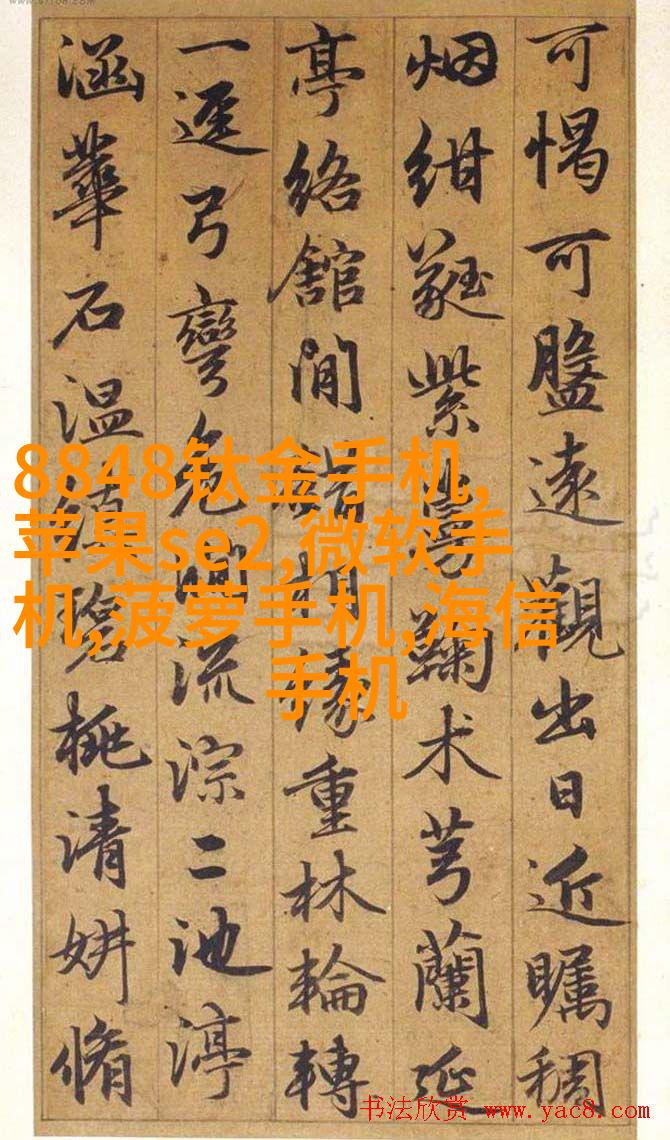 可愒可盤遠觀出日近矚稠
烟紺蕤紫鞠术芎蘭延
亭絡館間相緣重林輪轉
一逕弓彎危流淙二池渟
涵華石温碧桃清妍脩
8848钛金手机,
苹果se2,微软手
机,菠萝手机,海信
手机
书法欣赏 www.yac8.com